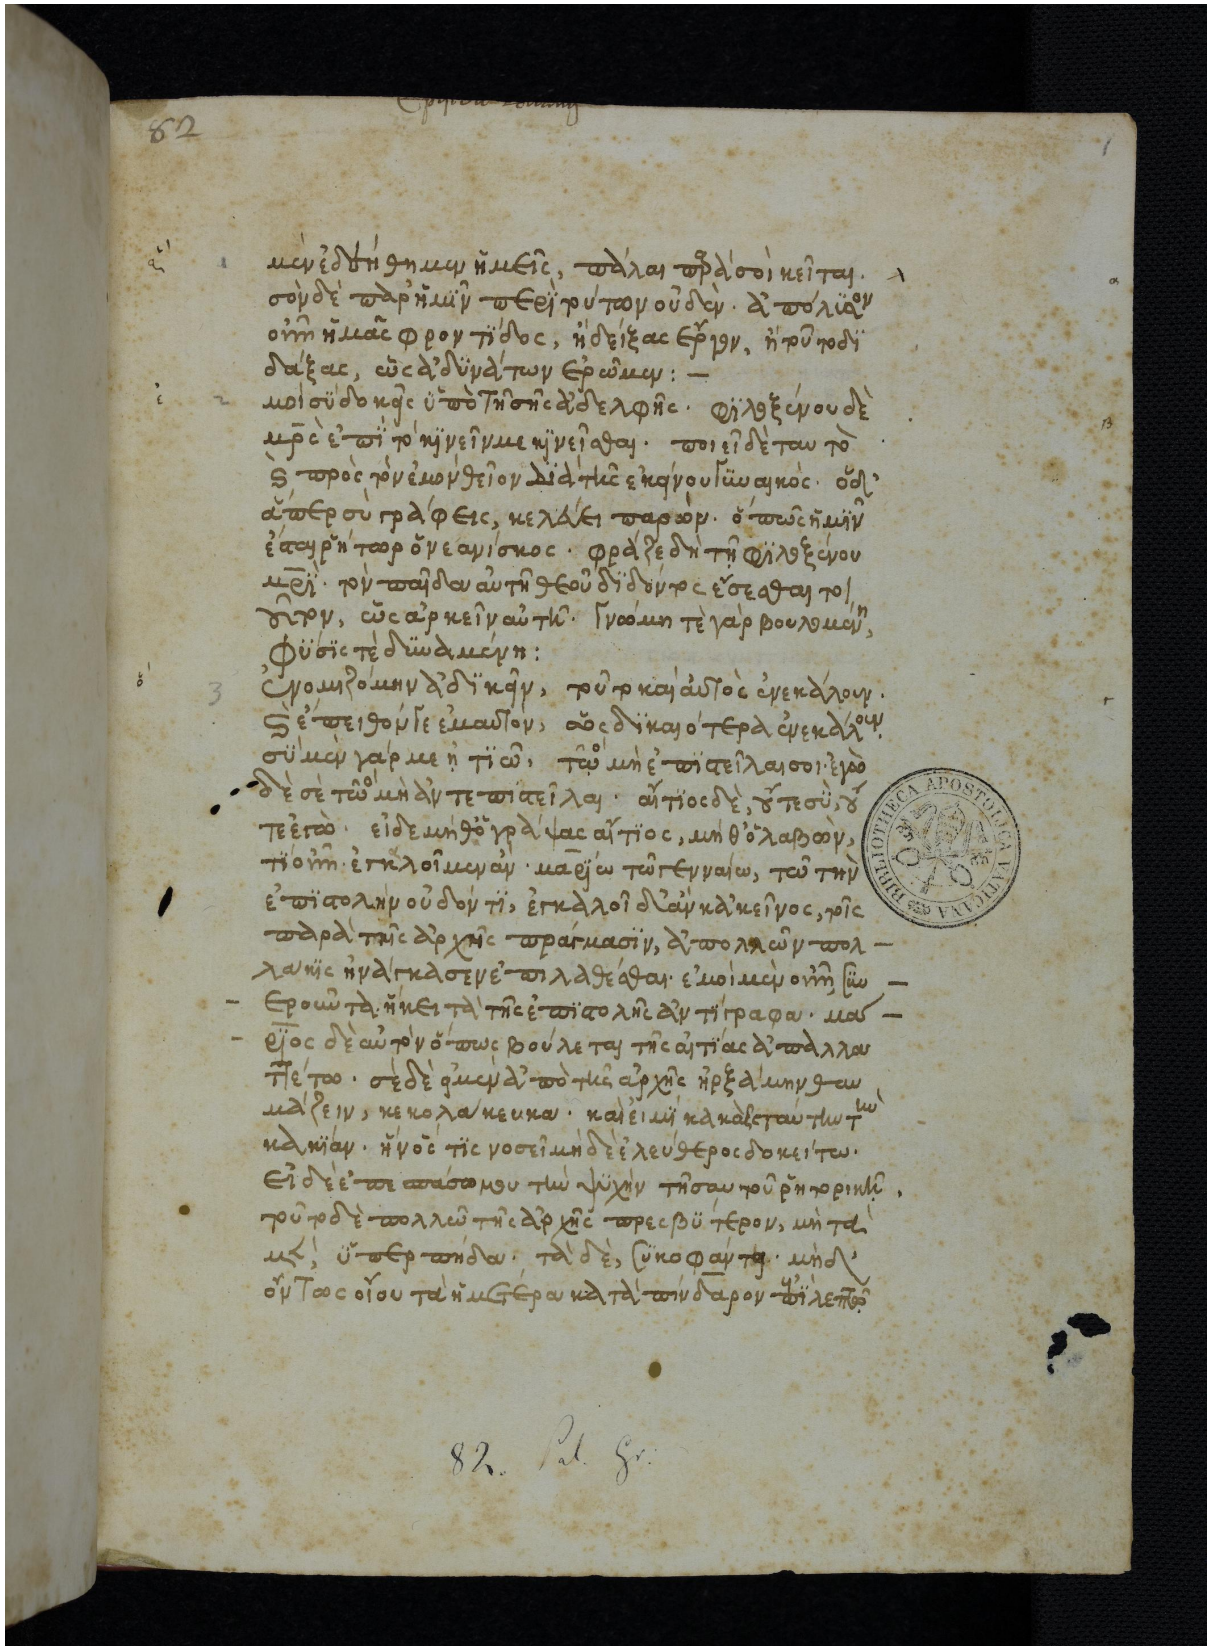 82
1
μὲν ἐδυνήθημεν ἡμεῖς, πάλαι παρὰ σοὶ κεῖται.
σὸν δὲ παρ' ἡμῖν περὶ τούτων οὐδέν. ἀπόλυσον
οὖν ἡμᾶς φροντίδος, ἢ δείξας ἔργον, ἢ τοῦτο δι
δάξας, ὡς ἀδυνάτων ἐρῶμεν: –
μοι σὺ δοκεῖς ὑπὸ τῆς σῆς ἀδελφῆς. φιλοξένου δὲ
μητρὸς ἐπὶ τὸ κινεῖν με κινεῖσθαι. ποιεῖ δὲ ταυτὸ
καὶ πρὸς τὸν ἐμὸν θεῖον διὰ τῆς ἐκείνου γυναικός. ὁ δ'
ἅπερ σὺ γράφεις, κελεύει παρών. ὅπως ἡμῖν
ἔσται ῥήτωρ ὁ νεανίσκος. φράζε δὴ τῇ φιλοξένου
μητρί. τὸν παῖδα αὐτῇ θεοῦ διδόντος ἔσεσθαι τοι
οῦτον, ὡς ἀρκεῖν αὐτῇ. γνώμη τε γὰρ βουλομένη,
φύσις τε δυναμένη:
ἐνομιζόμην ἀδικεῖν, τοῦτο καὶ αὐτὸς ἐνεκάλουν.
καὶ ἔπειθόν γε ἐμαυτόν, ὡς δικαιότερα ἐνεκάλουν.
σὺ μὲν γάρ με ᾐτιῶ, τῷ μὴ ἐπιστεῖλαί σοι. ἐγὼ
δὲ σὲ τῷ μὴ ἀντεπιστεῖλαι. αἴτιος δὲ, οὔτε σὺ, οὔ
τε ἐγώ. εἰ δὲ μήθ' ὁ γράψας αἴτιος, μήθ' ὁ λαβών,
τί οὖν. ἐγκαλοῖμεν ἂν. μαρίῳ τῷ γενναίῳ, τῷ τὴν
ἐπιστολὴν οὐ δόντι, ἐγκαλοῖ δ' ἂν κἀκεῖνος, τοῖς
παρὰ τῆς ἀρχῆς πράγμασιν, ἃ πολλῶν πολ –
λάκις ἠνάγκασεν ἐπιλαθέσθαι. ἐμοὶ μὲν οὖν συν –
– ερωῶτα ἥκει τὰ τῆς ἐπιστολῆς ἀντίγραφα. μά –
– ριος δὲ αὑτὸν ὅπως βούλεται τῆς αἰτίας ἀπαλλα
ττέτω. σὲ δὲ εἰ μὲν ἀπὸ τῆς ἀρχῆς ἠρξάμην θαυ
μάζειν, κεκολάκευκα. καὶ εἰμὶ κακὸς ταύτην τὴν
κακίαν. ἣν ὅς τις νοσεῖ μὴ δὲ ἐλεύθερος δοκείτω.
εἰ δὲ ἐπεσπάσω μου τὴν ψυχὴν τῆς αυτοῦ ῥητορικῇ,
τοῦτο δὲ πολλῷ τῆς ἀρχῆς πρεσβύτερον, μὴ τὰ
μὲν, ὑπερπήδα. τὰ δὲ, συκοφάντει. μὴ δ'
82. Pal. Gr.
BIBLIOTHECA APOSTOLICA VATICANA